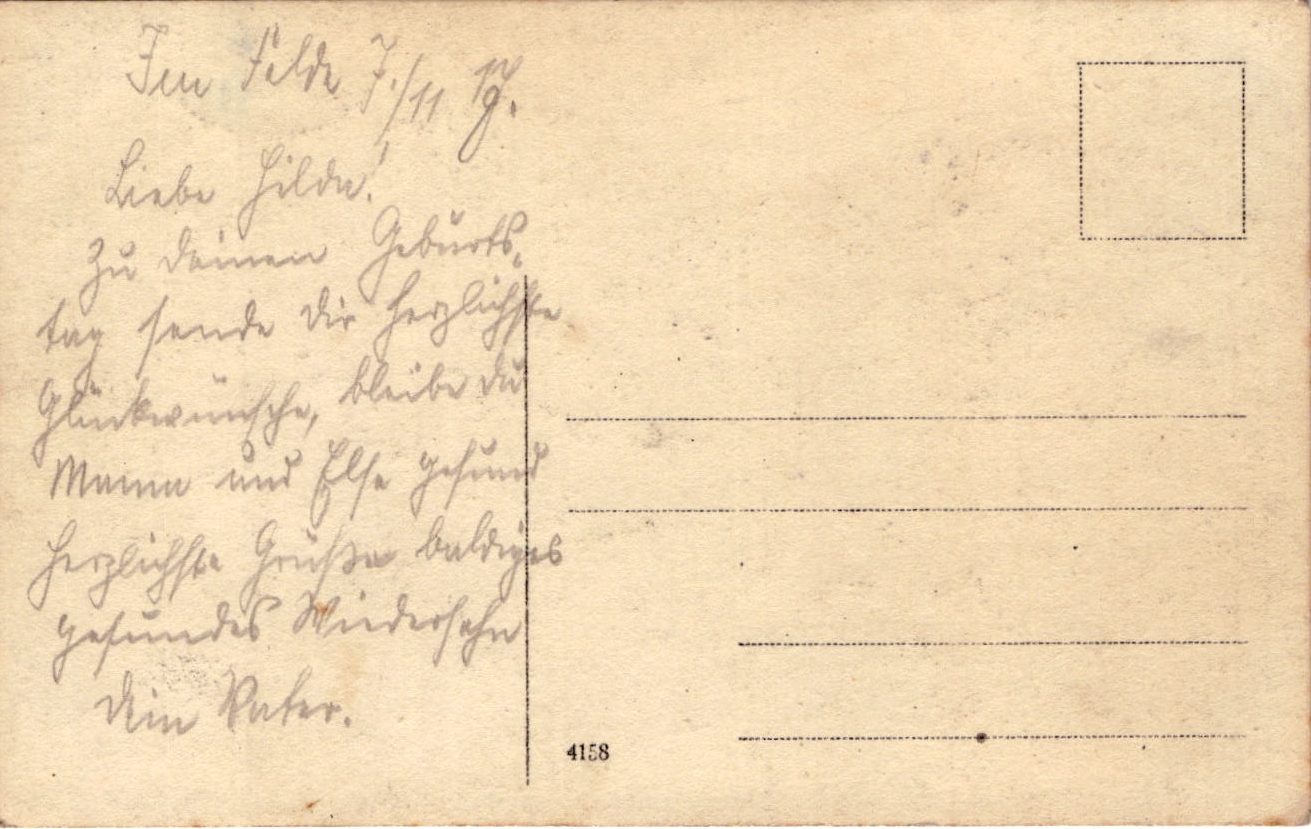 Im Felde 7./11 17.
Liebe Hilda!
Zu deinen Geburts-
tag sende dir herzlichste
Glückwünsche, bleibe du
Mama und Else gesund
herzlichste Grüße baldiges
gesundes Wiedersehn
Dein Vater.
4158